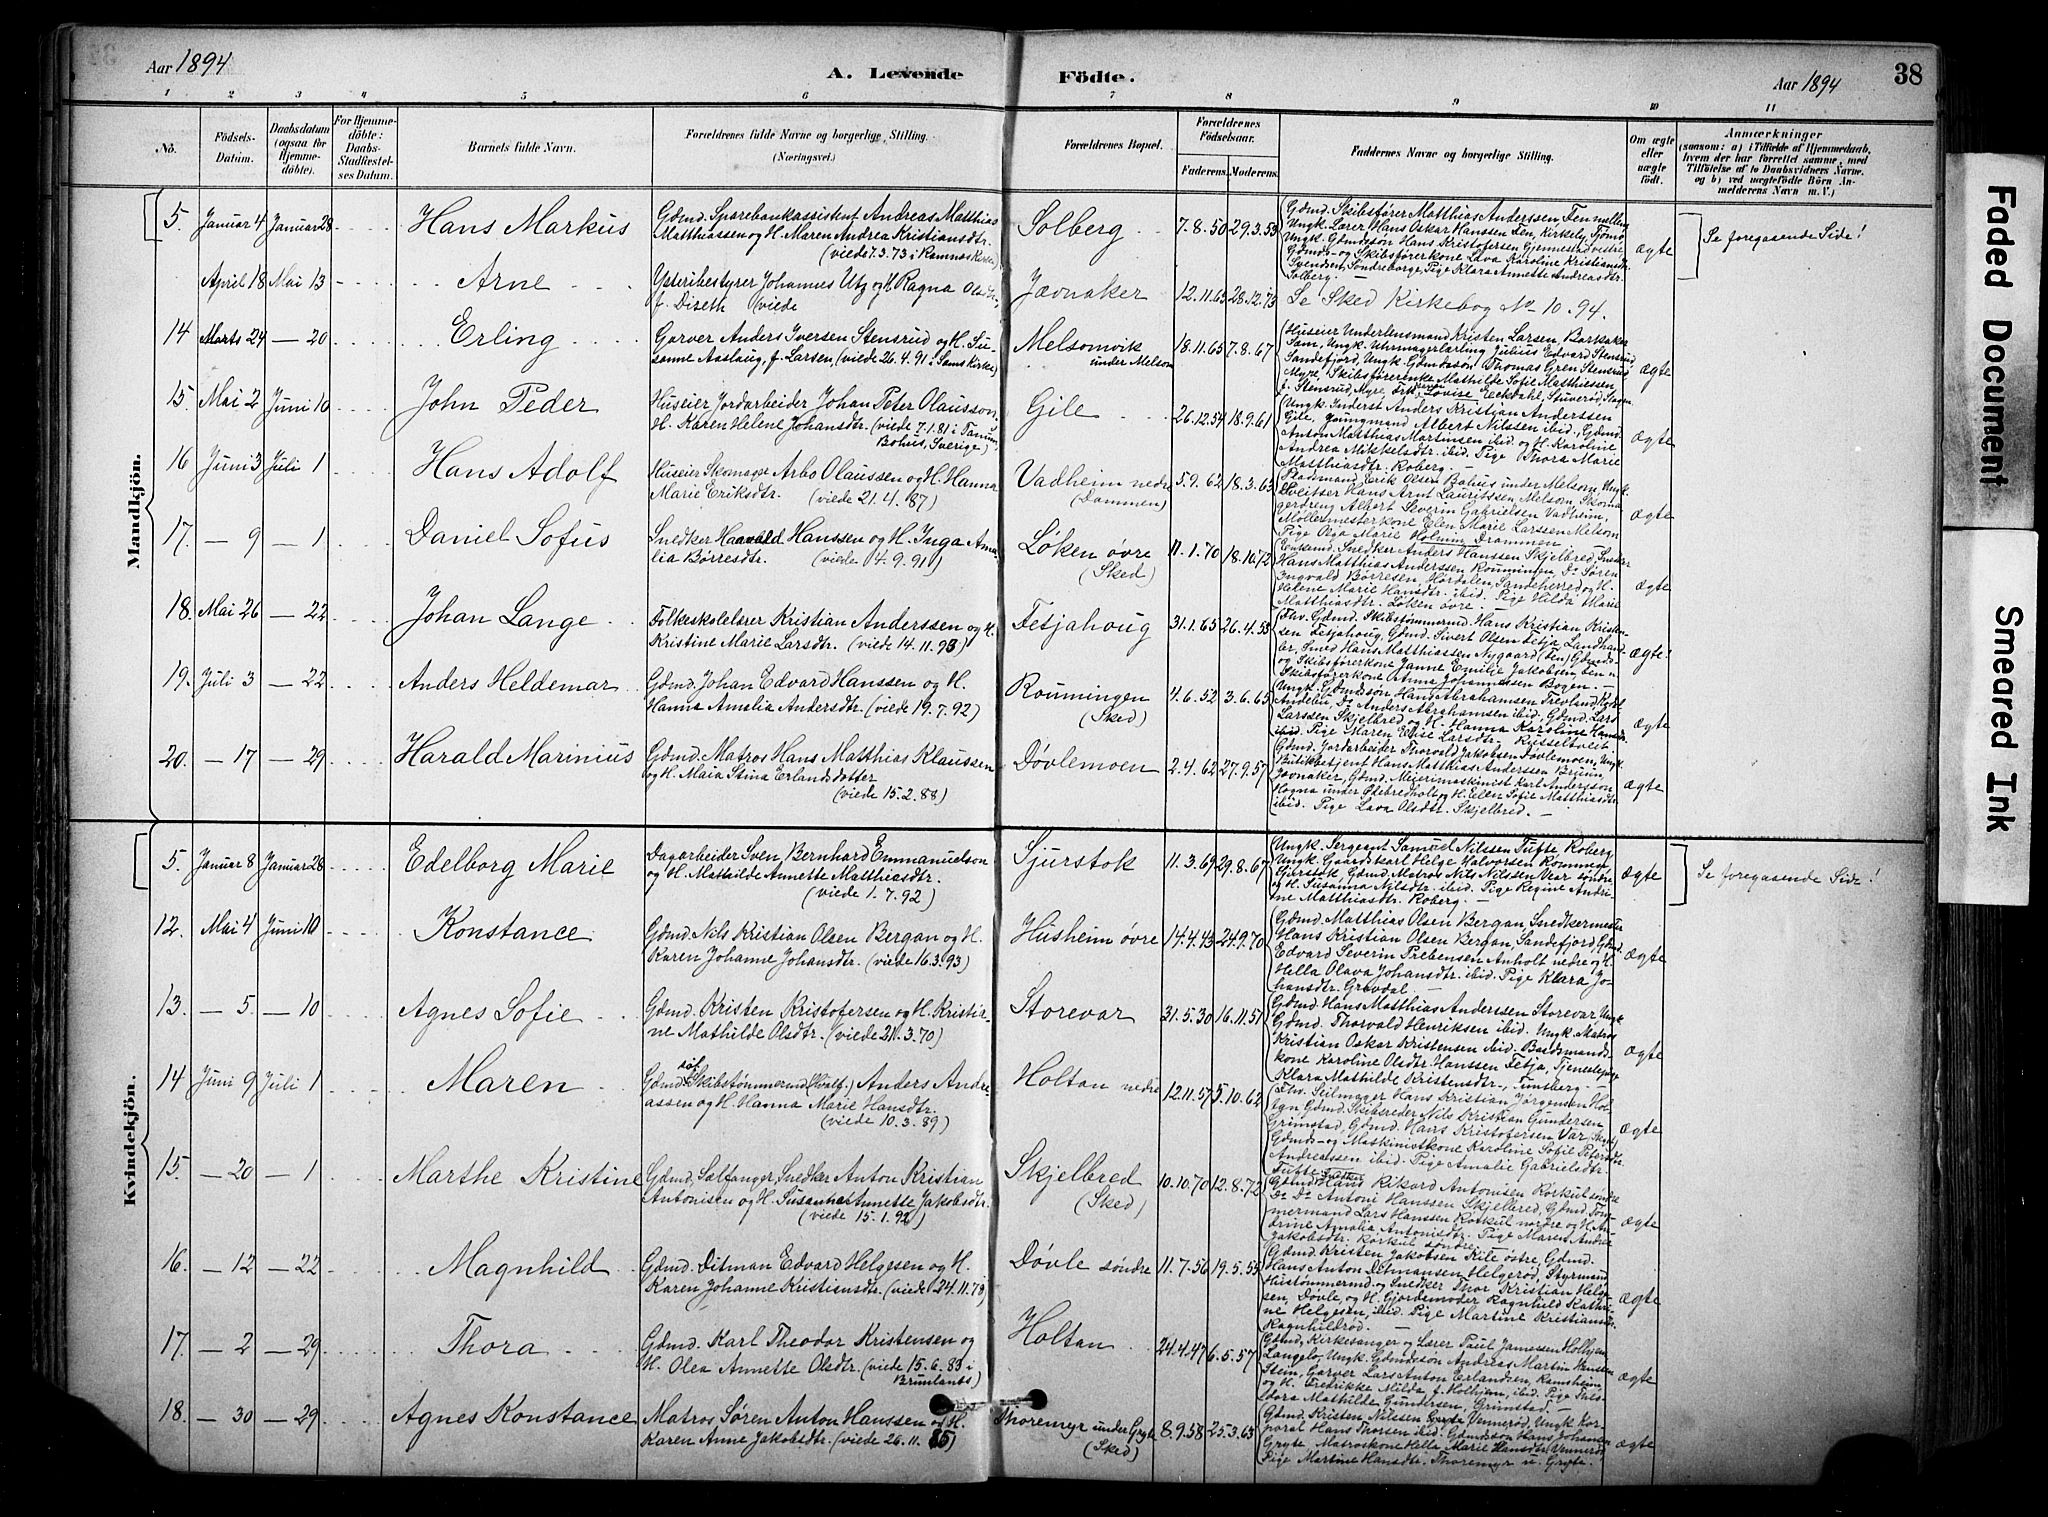 Aar 1894
A. Levende Födte.
Aar 1894
38
1 2 3 4 5 6 7 8 9 10 11
No.
Födsels-Datum.
Daabsdatum (ogsaa for Hjemmedöbte).
For Hjemmedöbte: Daabs-Stadfestelses Datum.
Barnets fulde Navn.
Forældrenes fulde Navne og borgerlige Stilling. (Næringsvei.)
Forældrenes Bopæl.
Forældrenes Födselsaar.
Faderens. Moderens.
Faddernes Navne og borgerlige Stilling.
Om ægte eller uægte födt.
Anmærkninger
(saasom: a) i Tilfælde af Hjemmedaab, hvem der har forrettet samme, med Tilföielse af to Daabsvidners Navne, og b) ved uægtefödte Börn Anmelderens Navn m. V.)
Mandkjön.
5. Januar 4 Januar 28 Hans Markus
Gdmd. Sparebankassistent Andreas Matthias
Matthiassen og H. Maren Andrea Kristiansdtr.
(viede 7.3.73 i Ramnæs Kirke)
Solberg 7.8.50 29.3.53
Gdmd. Skibsfører Matthias Anderssen Fennelling
Ungk. Lærer Hans Oskar Hanssen Len, Kirkeby, Tjømø
Ungk. Gdmdssøn Hans Kristofersen Gjennestad vestre
Gdmds- og Skibsførerkone Lava Karoline Kristiansdtr.
Svendsen, Søndreborge, Pige Klara Annette Andreasdtr.
Solberg. —
ægte
Se foregaaende Side!
April 18 Mai 13 Arne
Ysteribestyrer Johannes Utz og H. Ragna
f. Diseth (viede
Jævnaker 12.11.63 28.12.73
Se Sked Kirkebog No 10. 94.
14 Marts 24 — 20 Erling
Garver Anders Iversen Stensrud og H. Susanne Aaslaug, f. Larsen, (viede 26.4.91 i Sams Kirke)
Melsomvik
under Melsom
18.11.65 7.8.67
Huseier Underlensmand Kristen Larsen Barkaker
Sam, Ungk. Uhrmagerlærling Julius Edvard Stensrud,
Sandefjord, Ungk. Gdmdssøn Thomas Gren Stensrud
Myre, Skibsførerenke Mathilde Sofie Matthiessen,
f. Stensrud, Myre, Lovise Eckdahl, Stuverød, Slagen
ægte
15. Mai 2 Juni 10 John Peder
Huseier Jordarbeider Johan Peter Olausson
H. Karen Helene Johansdtr. (viede 7.1.81 i Tanum
Bohus, Sverige)
Gile 26.12.54 18.9.61
Ungk. Inderst Anders Kristian Anderssen
Gile, Youngmand Albert Nilssen ibid., Gdmd.
Anton Matthias Martinsen ibid. og H. Karoline
Andrea Mikkelsdtr. ibid. Pige Thora Marie
Matthiasdtr. Roberg. —
ægte
16 Juni 3 Juli 1 Hans Adolf
Huseier Skomager Arbo Olaussen og H. Hanna
Marie Eriksdtr. (viede 21.4.87)
Vadheim nedre
(Dammen)
5.9.62 18.3.63
Pladsmand Erik Olsen Bohus under Melsom, Ungk.
Sveitser Hans Arnt Lauritssen, Melsom, Skomagerdreng Albert Severin Gabrielsen Vadheim,
Møllemesterkone Elen Marie Larssen Melsom
Pige Olga Marie Holmin, Drammen.
ægte
17. — 9 — 1 Daniel Sofus
Snedker Haavald Hanssen og H. Inga Amalia Børresdtr. (viede 4.9.91)
Løken øvre
(Sked)
11.1.70 18.10.72
Enkemd. Snedker Anders Hanssen Skjelbred, Snedker
Hans Matthias Anderssen Roumingen, Do Søren
Ingvald Børresen, Hørdalen, Sandeherred og H.
Helene Marie Hansdtr. ibid. Pige Hilda Marie
Matthiasdtr. Løken øvre. —
ægte
18. Mai 26 — 22 Johan Lange
Folkeskolelærer Kristian Anderssen og H.
Kristine Marie Larsdtr. (viede 14.11.93)
Fetjahoug 31.1.65 26.4.53
Fhv. Gdmd. Skibstømmermd. Hans Kristian Kristensen Fetjahoug, Gdmd. Sivert Olsen Fetja, Landhandler, Smed Hans Matthiassen Nygaard (Len), Gdmds-
og Skibsførerkone Janne Emilie Jakobsen, Len n.
Skibsførerkone Anna Johannessen Bogen.
ægte!
19. Juli 3 — 22 Anders Heldemar
Gdmd. Johan Edvard Hanssen og H.
Hanna Amalia Andersdtr. (viede 19.7.92)
Roumingen
(Sked)
4.6.52 3.6.65
Ungk. Gdmdssøn Hans Abrahamsen Trevland,
Andebu, Do Anders Abrahamsen ibid, Gdmd. Lars
Larssen Skjelbred og H. Hanna Karoline Hansdtr.
ibid. Pige Maren Elise Larsdtr.
ægte
20. — 17 — 29 Harald Marinius
Gdmd. Matros Hans Matthias Klaussen
og H. Maia Stina Erlandsdotter
(viede 15.2.88)
Døvlemoen 2.4.62 27.9.57
Gdmd. Jordarbeider Thorvald Jakobsen Døvlemoen, Ungk.
Butikbetjent Hans Matthias Anderssen Bruun,
Jævnaker, Gdmd. Meierimaskinist Karl Andersson
Hogna under Økebredholt og H. Elen Sofie Matthiasdtr.
ibid. Pige Lava Olsdtr. Skjelbred. —
ægte
Kvindekjön.
5. Januar 8 Januar 28 Edelborg Marie
Dagarbeider Sven Bernhard Emmanuelson
og H. Mathilde Annette Matthiasdtr.
(viede 1.7.92)
Sjurstok 11.3.69 29.8.67
Ungk. Sergeant Samuel Nilssen Tufte, Roberg
Ungk. Gaardskarl Helge Halvorsen Rommen
Gjerstok, Gdmd. Matros Nils Nilssen Vear søndre
og H. Susanna Nilsdtr. ibid. Pige Regine Andrine Matthiasdtr. Roberg. —
ægte
Se foregaaende Side!
12. Mai 4 Juni 10 Konstance
Gdmd. Nils Kristian Olsen Bergan og H.
Karen Johanne Johansdtr. (viede 16.3.93)
Husheim øvre 14.4.43 24.9.70
Gdmd. Matthias Olsen Bergan, Snedkermester
Hans Kristian Olsen Bergan, Sandefjord, Gdmd.
Edvard Severin Prebensen Anholt nedre og H.
Hella Olava Johansdtr. ibid. Pige Klara Johansdtr. Grevdal. —
ægte
13. — 5. — 10 Agnes Sofie
Gdmd. Kristen Kristofersen og H. Kristine Mathilde Olsdtr. (viede 21.3.70)
Storevar 31.5.30 16.11.51
Gdmd. Hans Matthias Anderssen Storevar, Ungk.
Gdmd. Thorvald Henriksen ibid. Ungk. Matros
Kristian Oskar Kristensen ibid. Baadsmandskone Karoline Olsdtr. Hanssen Fetja, Tjenestepige
Klara Mathilde Kristensdtr., Tunsberg. —
ægte
14 Juni 9 Juli 1 Maren
Gdmd. Skibstømmermd. (Hvalf.) Anders Andreassen og H. Hanna Marie Hansdtr.
(viede 10.3.89)
Holtan nedre 12.11.57 5.10.62
Fhv. Seilmager Hans Kristian Jørgensen Holtan, Gdmd. Skibsreder Nils Kristian Gundersen
Grimstad, Gdmd. Hans Kristofersen Var,
Gdmds- og Maskinistkone Karoline Sofie Petersdtr.
Andreassen ibid. Pige Amalie Gabrielsdtr.
Tufte. —
ægte
15. — 20 — 1 Marthe Kristine
Gdmd. Sælfanger, Snedker Anton Kristian
Antonisen og H. Susanne Annette Jakobsdtr.
(viede 15.1.92)
Skjelbred
(Sked)
10.10.70 12.8.72
Gdmd. Hans Rikard Antonisen Rørkul søndre
Do Do Antoni Hanssen Skjelbred, Gdmd. Tømmermand Lars Hanssen Rørkul nordre og H. Andrine Amalia Antonidtr. Pige Maren Andrea
Jakobsdtr. Rørkul søndre. —
ægte
16. — 12 — 22 Magnhild
Gdmd. Ditman Edvard Helgesen og H.
Karen Johanne Kristiansdtr. (viede 24.11.79)
Døvle søndre 11.7.56 19.5.55
Gdmd. Kristen Jakobsen Kile østre, Gdmd.
Hans Anton Ditmansen Helgerød, Styrmand
Hustømmermd. og Snedker Thor Kristian Helgesen, Døvle, og H. Gjordemoder Ragnhild Kathrine Helgesen, ibid. Pige Martine Kristiansdtr.
Ragnhildrød. —
ægte
17. — 2 — 29 Thora
Gdmd. Karl Theodor Kristensen og
H. Olea Annette Olsdtr. (viede 15.6.83 i
Brunlanæs)
Holtan 24.4.47 6.5.57
Gdmd. Kirkesanger og Lærer Paul Jamessen Holhjem,
Langelo, Ungk. Gdmdssøn Andreas Martin Hanssen
Stein, Garver Lars Anton Erlandsen, Ramsheim,
og H. Fredrikke Milda f. Holhjem, ibid. Pige Theodora Mathilde Gundersen, Grimstad. —
ægte
18. — 30 — 29 Agnes Konstance
Matros Søren Anton Hanssen og H.
Karen Anne Jakobsdtr. (viede 26.11.85)
Thoremyr under Gryte
(Sked)
8.9.58 25.3.63
Gdmd. Kristen Nilssen Vennerød, Ungk. Korporal Hans Thorsen ibid. Gdmdssøn Hans Johansen
Gryte, Matroskone Hella Marie Hansdtr. Vennerød,
Pige Martine Hansdtr. Thoremyr u. Gryte. —
ægte
Faded Document
Smeared Ink